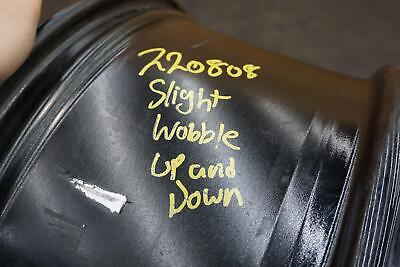 220808
Slight
Wobble
UP and
Down